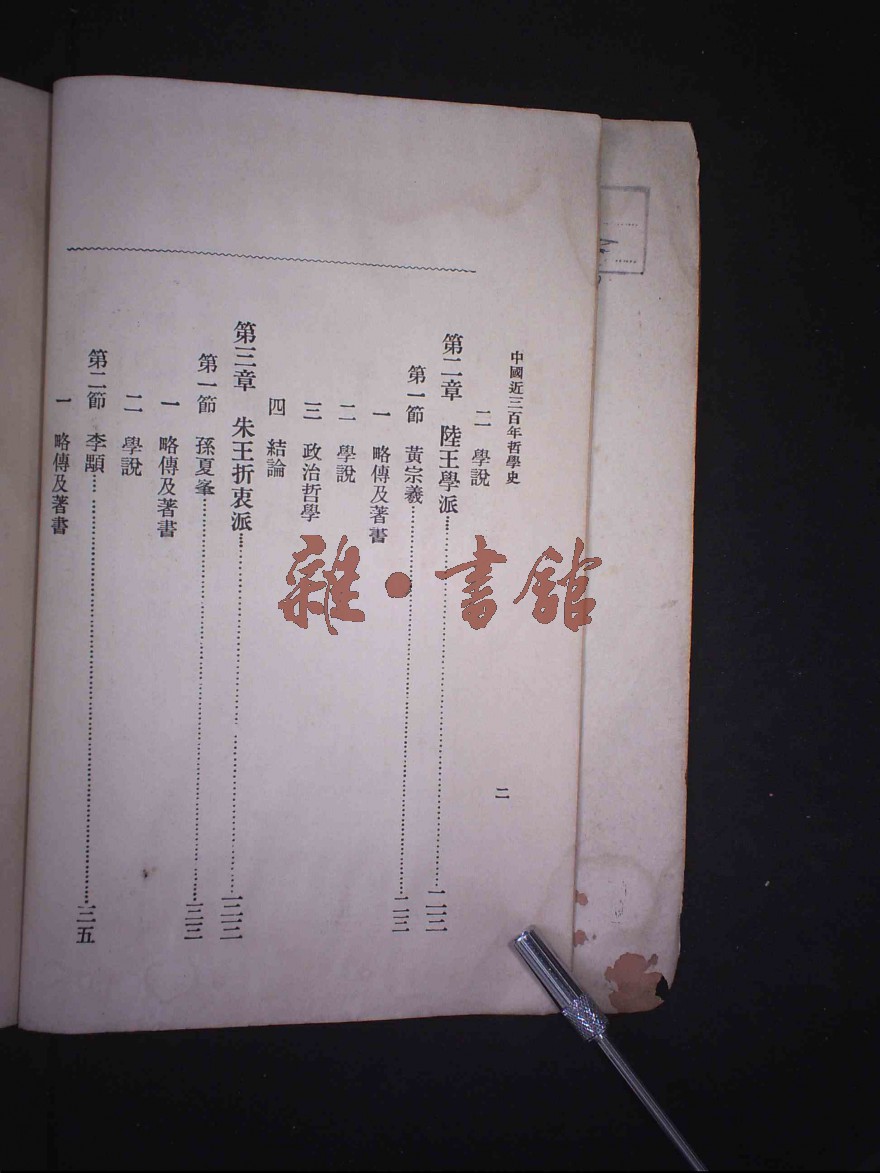 中國近三百年哲學史
二
二 學說
第二章 陸王學派……二三
第一節 黃宗羲……二三
一 略傳及著書
二 學說
三 政治哲學
四 結論
第三章 朱王折衷派……三三
第一節 孫夏峯……三三
一 略傳及著書
二 學說
第二節 李顒……三五
一 略傳及著書
雜·書館